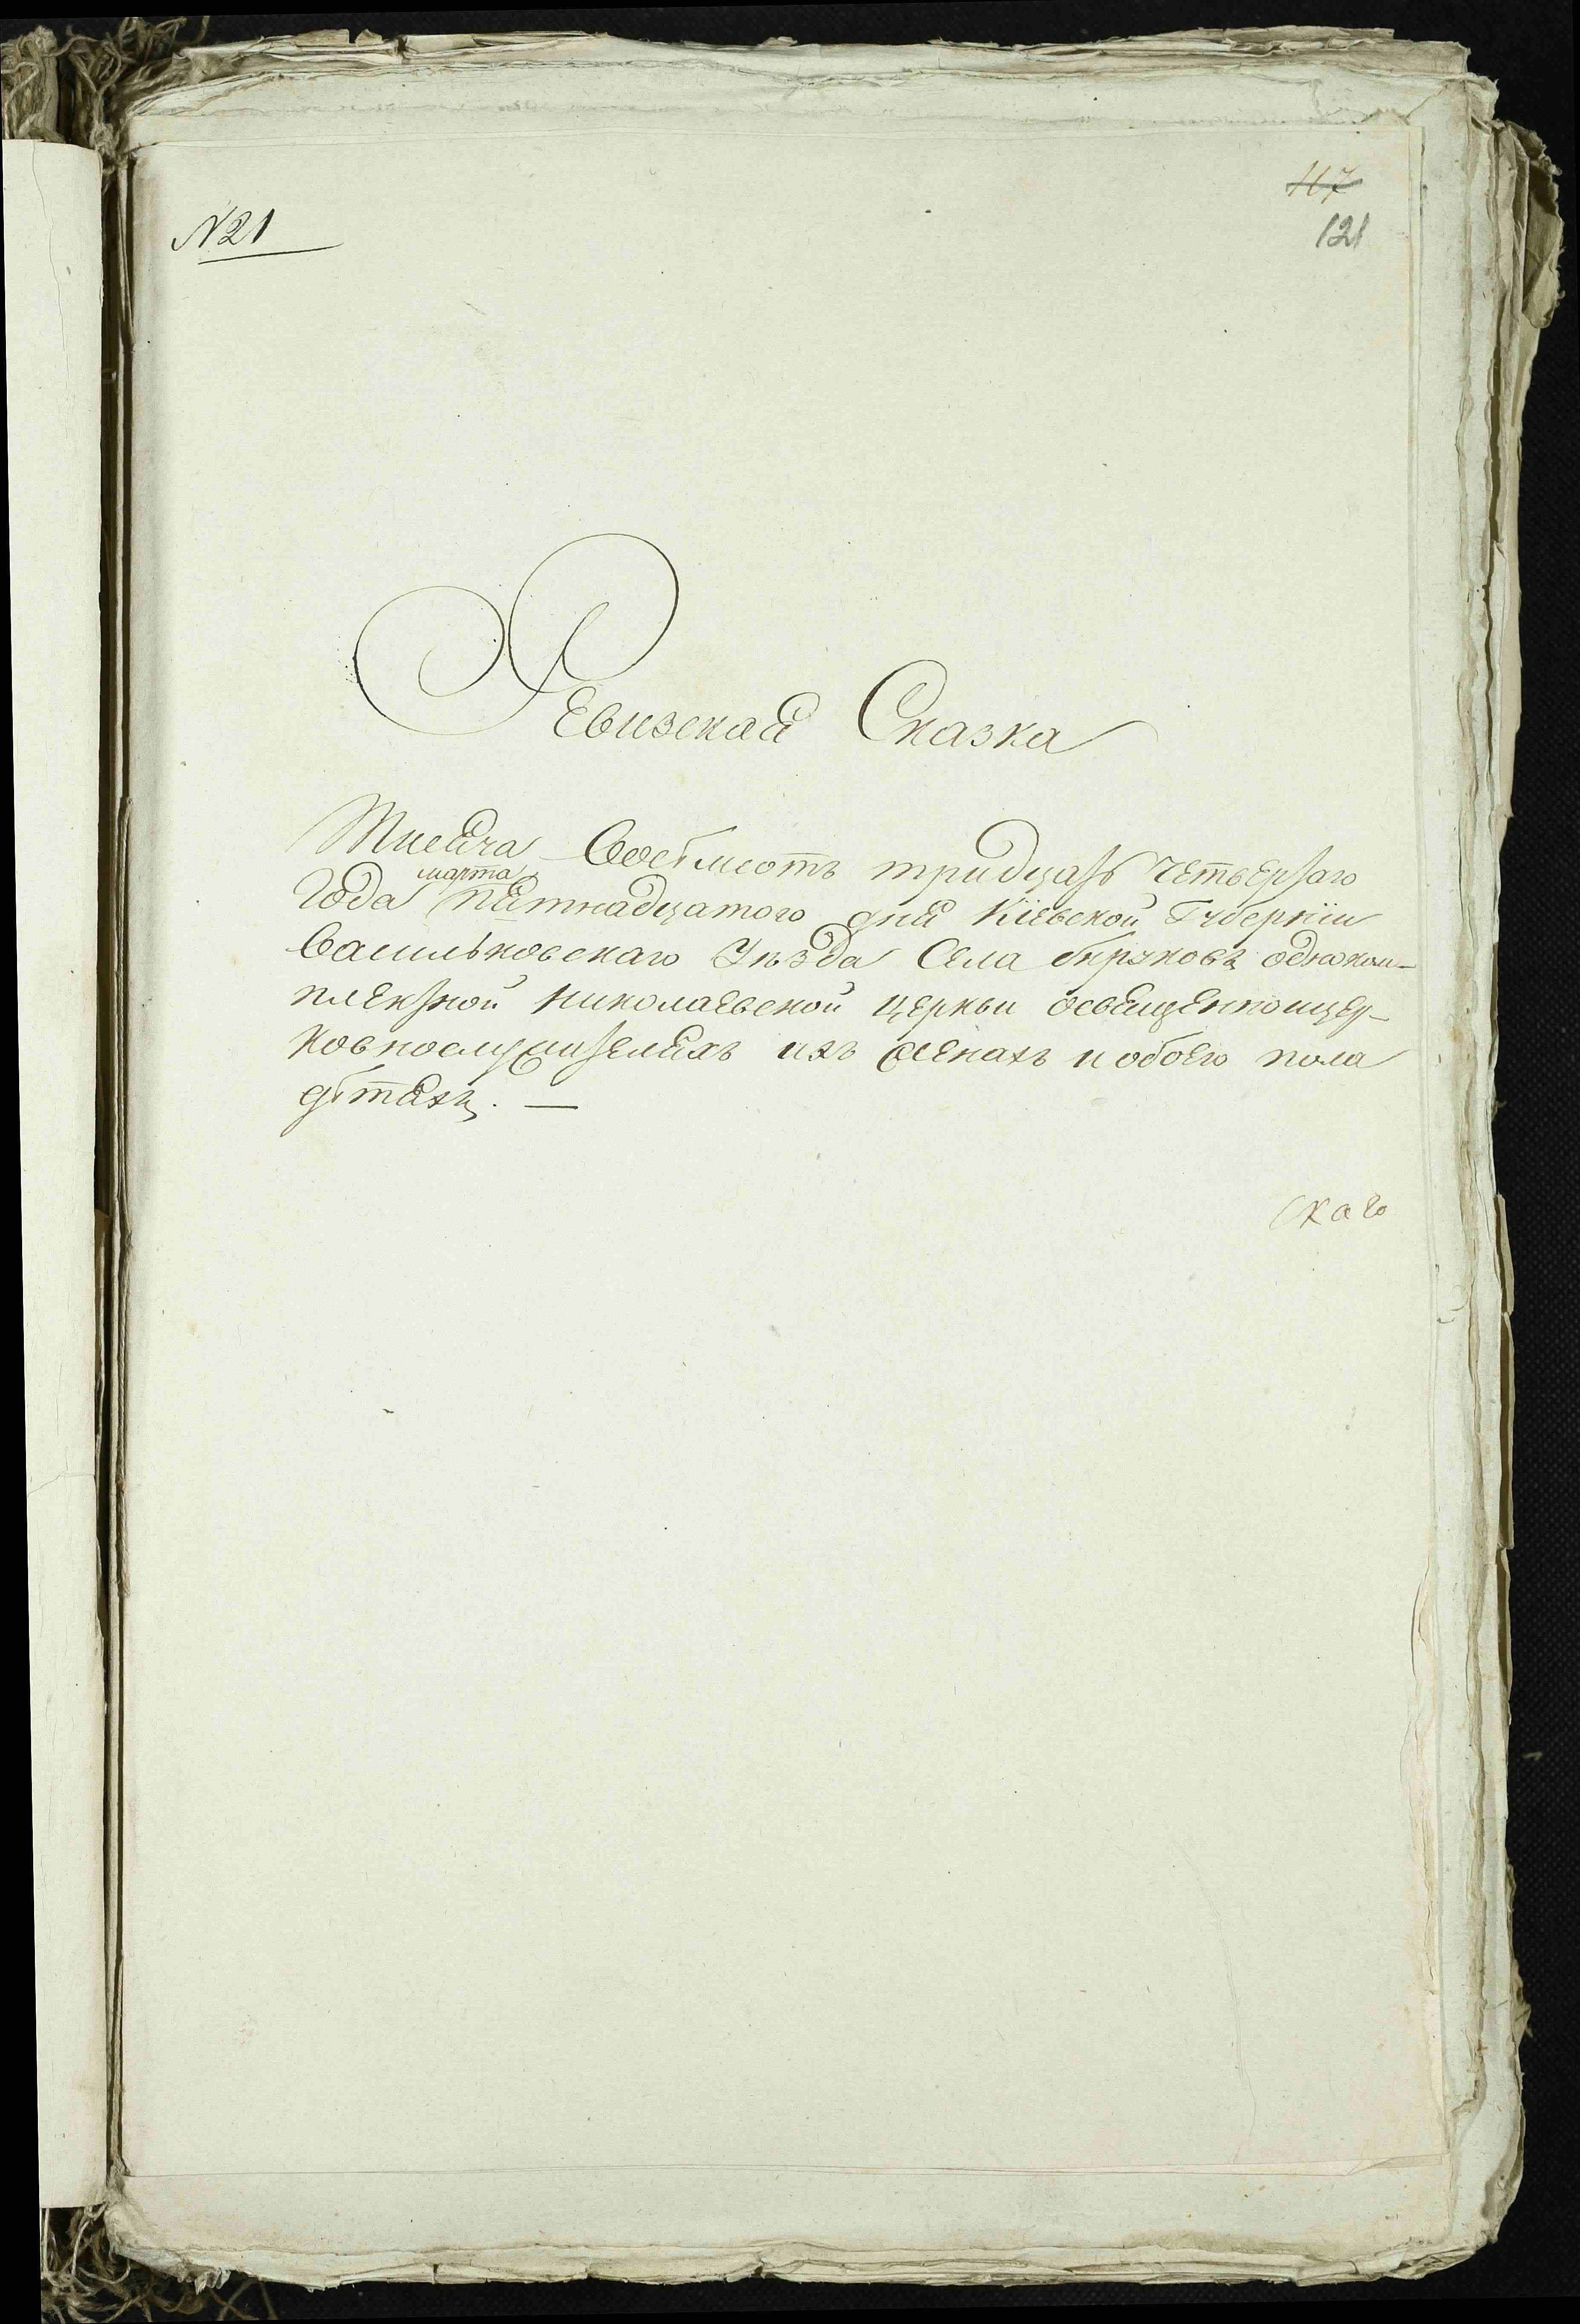 117
№ 21
121
Ревизская Сказка
Тисяча Восѣмсотъ тридцать Четвертаго
марта
Года пятнадцатого дня Кіевской Губерніи
Васильковскаго Уѣзда Села Бируковъ одноком-
плектной Николаевской церкви освященноицер-
ковнослужителяхъ ихъ женахъ и обоего пола
дѣтяхъ. —
скаго